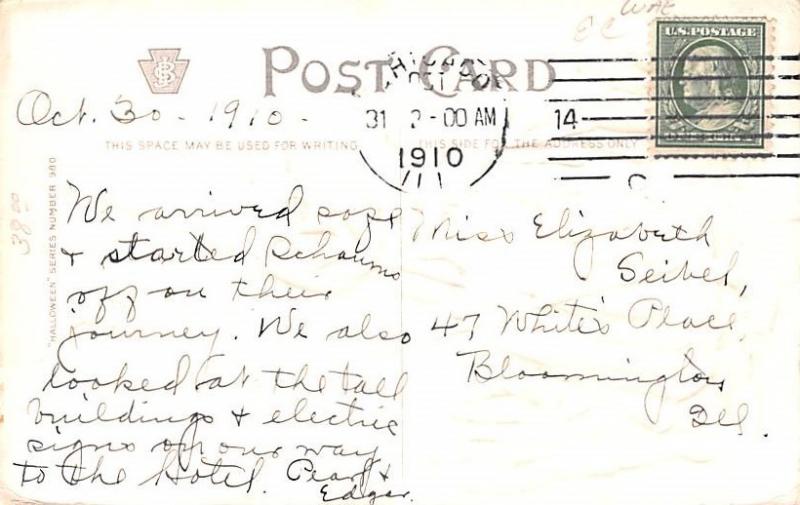 WAE
EC
POST CARD
U.S. POSTAGE
Oct. 30 - 1910 -
31 2-00 AM 14
1910
THIS SPACE MAY BE USED FOR WRITING
THIS SIDE FOR THE ADDRESS ONLY
38 00
"HALLOWEEN" SERIES NUMBER 980
We arrived safe
& started Schaums
off on their
journey. We also
looked at the tall
buildings & electric
signs on our way
to the Hotel. Pearl &
Edgar.
Miss Elizabeth
Seibel,
47 White's Place,
Bloomington
Ill.